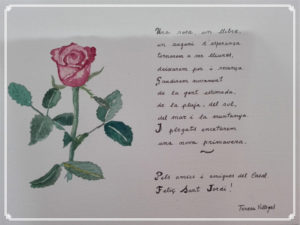 Una rosa, un llibre,
un auguri d'esperança
tornarem a ser lliures,
deixarem por i recança
Gaudirem novament
de la gent estimada,
de la platja, del sol,
del mar i la muntanya.
I plegats encetarem
una nova primavera.
Pels amics i amigues del Casal.
Feliç Sant Jordi!
Teresa